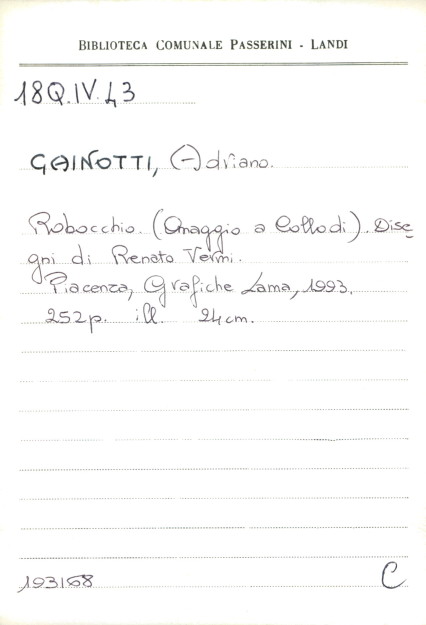 BIBLIOTECA COMUNALE PASSERINI - LANDI
18Q.IV.43
GAINOTTI, Adriano.
Robocchio. (Omaggio a Collodi). Dise
gni di Renato Vermi.
Piacenza, Grafiche Lama, 1993.
252p. ill. 24cm.
193168 C